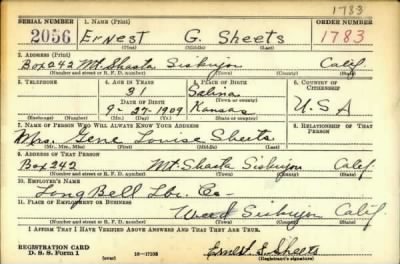 1783
SERIAL NUMBER 1. NAME (Print) ORDER NUMBER
2056 Ernest G. Sheets 1783
(First) (Middle) (Last)
2. ADDRESS (Print)
Box 242 Mt. Shasta Siskiyou Calif.
(Number and street or R. F. D. number) (Town) (County) (State)
3. TELEPHONE 4. AGE IN YEARS 5. PLACE OF BIRTH 6. COUNTRY OF CITIZENSHIP
31 Salina
DATE OF BIRTH (Town or county)
9-27-1909 Kansas U.S.A
(Exchange) (Number) (Mo.) (Day) (Yr.) (State or country)
7. NAME OF PERSON WHO WILL ALWAYS KNOW YOUR ADDRESS 8. RELATIONSHIP OF THAT PERSON
Mrs. Gene Louise Sheets
(Mr., Mrs., Miss) (First) (Middle) (Last)
9. ADDRESS OF THAT PERSON
Box 242 Mt. Shasta Siskiyou Calif.
(Number and street or R. F. D. number) (Town) (County) (State)
10. EMPLOYER'S NAME
Long Bell Lbr. Co-
11. PLACE OF EMPLOYMENT OR BUSINESS
Weed Siskiyou Calif
(Number and street or R. F. D. number) (Town) (County) (State)
I AFFIRM THAT I HAVE VERIFIED ABOVE ANSWERS AND THAT THEY ARE TRUE.
REGISTRATION CARD
D. S. S. Form 1 (over) 16-17105 Ernest G. Sheets
(Registrant's signature)